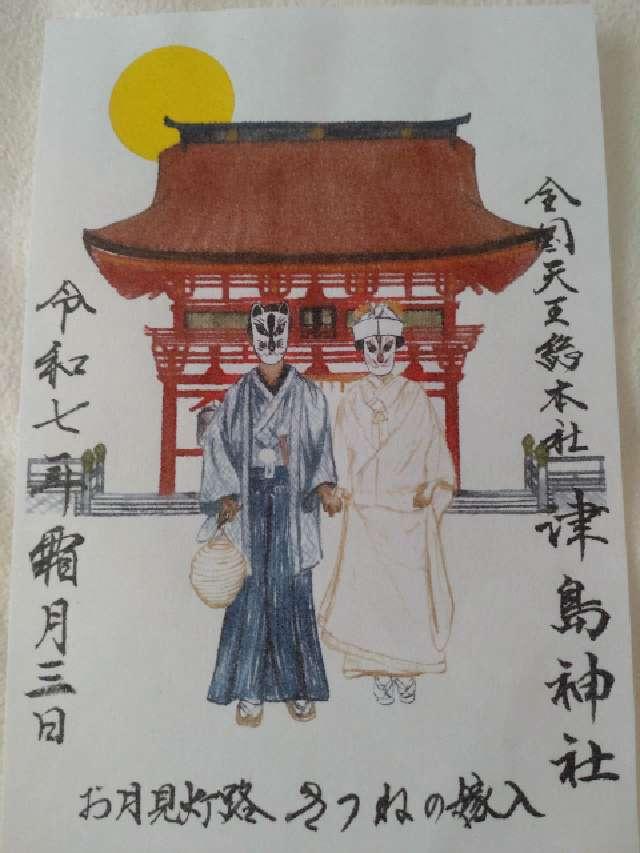 全国天王総本社
津島神社
令和七年霜月三日
お月見灯路 きつねの嫁入